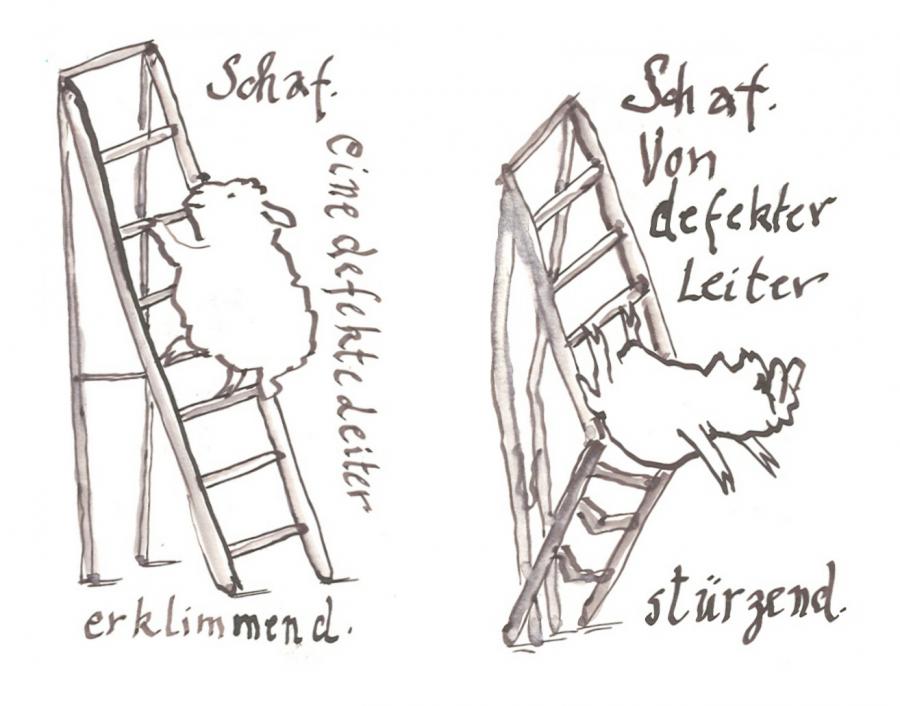 Schaf.
Eine defekte Leiter
erklimmend.
Schaf.
Von
defekter
Leiter
stürzend.